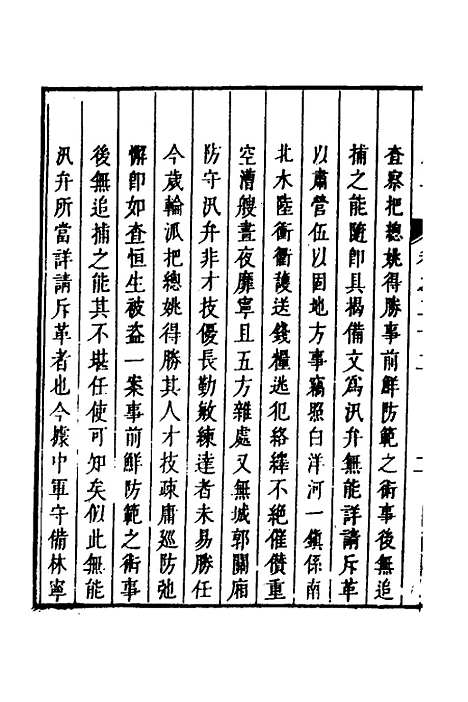 查察把總姚得勝事前鮮防範之術事後無追
捕之能隨即具揭備文為汛弁無能詳請斥革
以肅營伍以固地方事竊照白洋河一鎮係南
北水陸衝衢護送錢糧逃犯絡繹不絕催儹重
空漕艘晝夜靡寧且五方雜處又無城郭關廂
防守汛弁非才技優長勤敏練達者未易勝任
今歲輪派把總姚得勝其人才技疎庸巡防弛
懈即如查恒生被盜一案事前鮮防範之術事
後無追捕之能其不堪任使可知矣似此無能
汛弁所當詳請斥革者也今據中軍守備林寧